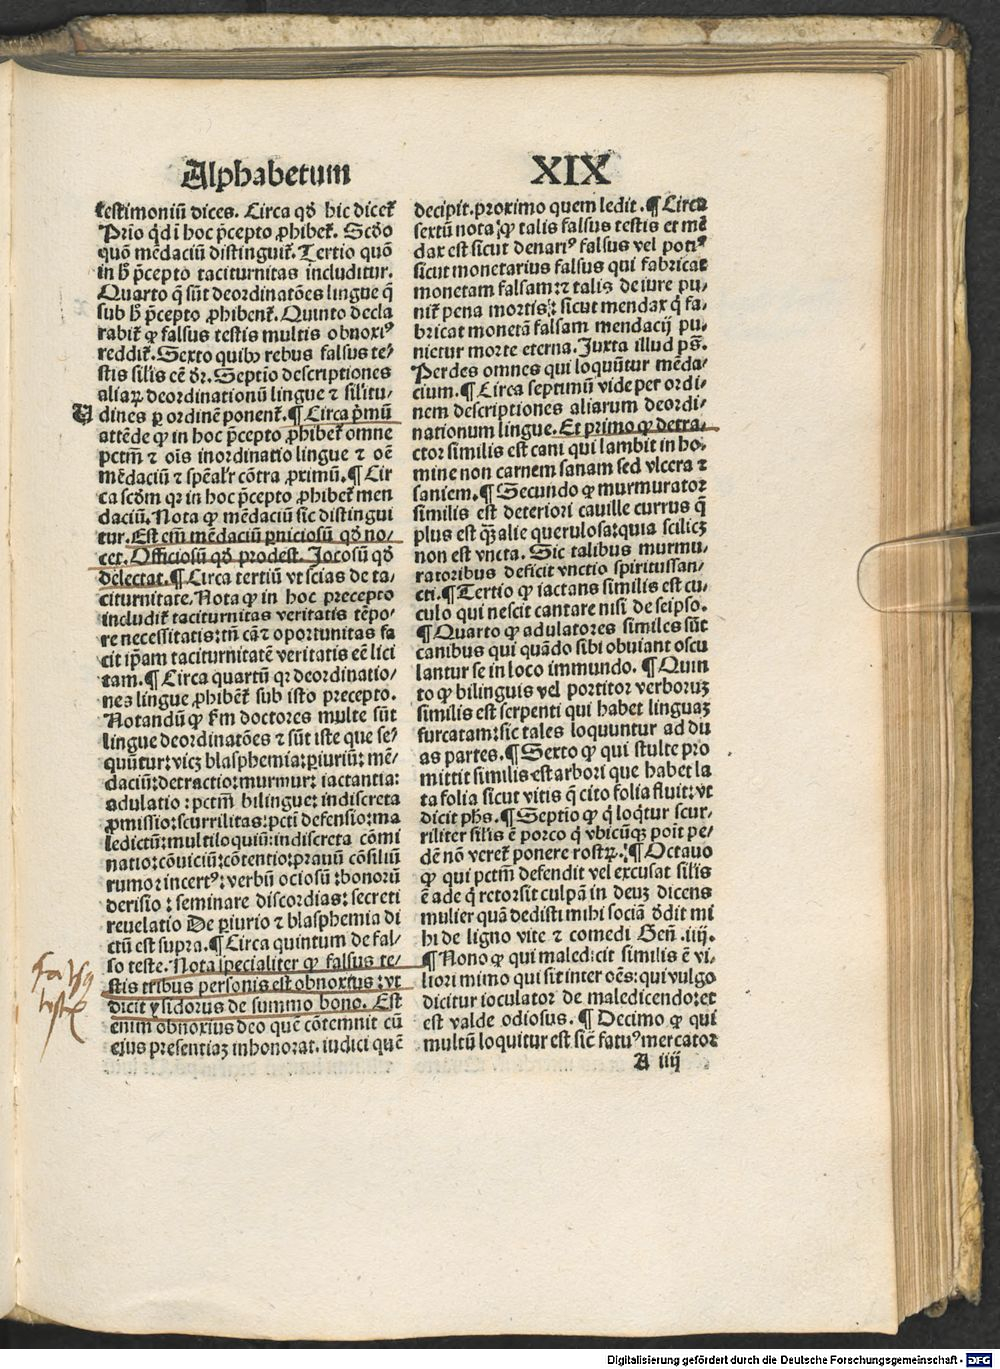 Alphabetum
XIX
testimoniū dices. Circa qđ hic dicet᷑
Prīo qd ī hoc p̄cepto ꝓhibet᷑. Scđo
quō mēdaciū distinguit᷑. Tertio quō
in hͦ p̄cepto taciturnitas includitur.
Quarto q̄ sūt deordinatōes lingue q̄
sub hͦ p̄cepto ꝓhibent᷑. Quinto decla
rabit᷑ ꝙ falsus testis multis obnoxiꝰ
reddit᷑. Sexto quibꝫ rebus falsus te⸗
stis silis cē dr̄. Septīo descriptiones
aliaꝝ deordinationū lingue ⁊ silitu⸗
U dines ꝑ ordinē ponent᷑. ¶ Circa p̄mū
attēde ꝙ in hoc p̄cepto ꝓhibet᷑ omne
pctm̄ ⁊ oīs inordinatio lingue ⁊ oē
mēdaciū ⁊ spēalr̄ cōtra ꝓximū. ¶ Cir
ca scđm qꝛ in hoc p̄cepto ꝓhibet᷑ men
daciū. Nota ꝙ mēdaciū sic distingui
tur. Est em̄ mēdaciū ꝑniciosū qđ no⸗
cet. Officiosū qđ prodest. Jocosū qđ
delectat. ¶ Circa tertiū vt scias de ta⸗
citurnitate. Nota ꝙ in hoc precepto
includit᷑ taciturnitas veritatis tēpo⸗
re necessitatis: tn̄ cā ⁊ oportunitas fa
cit ip̄am taciturnitatē veritatis eē lici
tam. ¶ Circa quartū qꝛ deordinatio⸗
nes lingue ꝓhibēt᷑ sub isto precepto.
Notandū ꝙ fm doctores multe sūt
lingue deordinatōes ⁊ sūt iste que se⸗
quūtur: vicꝫ blasphemia: ꝑiuriū: mē⸗
daciū: detractio: murmur: iactantia:
adulatio: pctm̄ bilingue: indiscreta
ꝓmissio: scurrilitas: pctī defensio: ma
ledictū: multiloquiū: indiscreta cōmi
natio: cōuiciū: cōtentio: prauū cōsiliū
rumor incertꝰ: verbū ociosū: bonorū
derisio: seminare discordias: secreti
reuelatio De ꝑiurio ⁊ blasphemia di
ctū est supra. ¶ Circa quintum de fal⸗
so teste. Nota specialiter ꝙ falsus te⸗
stis tribus personis est obnoxius: vt
dicit ysidorus de summo bono. Est
enim obnoxius deo quē cōtemnit cū
eius presentiaꝫ inhonorat. iudici quē
decipit. proximo quem ledit. ¶ Circa
sextū nota: ꝙ talis falsus testis et mē
dax est sicut denariꝰ falsus vel potiꝰ
sicut monetarius falsus qui fabricat
monetam falsam: ⁊ talis de iure pu⸗
nit᷑ pena mortis: sicut mendax q̇ fa⸗
bricat monetā falsam mendacij pu⸗
nietur morte eterna. Juxta illud ps̄.
Perdes omnes qui loquūtur mēda⸗
cium. ¶ Circa septimū vide per ordi⸗
nem descriptiones aliarum deordi⸗
nationum lingue. Et primo ꝙ detra⸗
ctor similis est cani qui lambit in ho⸗
mine non carnem sanam sed vlcera ⁊
saniem. ¶ Secundo ꝙ murmurator
similis est deteriori cauille currus q̄
plus est q̄ꝫ alie querulosa: quia scilicꝫ
non est vncta. Sic talibus murmu⸗
ratoribus deficit vnctio spiritussan⸗
cti. ¶ Tertio ꝙ iactans similis est cu⸗
culo qui nescit cantare nisi de seipso.
¶ Quarto ꝙ adulatores similes sūt
canibus qui quādo sibi obuiant oscu
lantur se in loco immundo. ¶ Quin
to ꝙ bilinguis vel portitor verboruꝫ
similis est serpenti qui habet linguaꝫ
furcatam: sic tales loquuntur ad du
as partes. ¶ Sexto ꝙ qui stulte pro
mittit similis est arbori que habet la
ta folia sicut vitis q̄ cito folia fluit: vt
dicit phs. ¶ Septīo ꝙ q̇ loq̇tur scur⸗
riliter silis ē porco q̇ vbicūqꝫ poīt pe⸗
dē nō veret᷑ ponere rostꝝ. ¶ Octauo
ꝙ qui pctm̄ defendit vel excusat silīs
ē ade q̇ retorsit culpā in deuꝫ dicens
mulier quā dedisti mihi sociā dedit mi
hi de ligno vite ⁊ comedi Geñ .iij.
¶ Nono ꝙ qui maledicit similis ē vi⸗
liori mimo qui sit inter oēs: qui vulgo
dicitur ioculator de maledicendo: et
est valde odiosus. ¶ Decimo ꝙ qui
multū loquitur est sic̄ fatuꝰ mercator
A iiij
Falsꝰ
testis
Digitalisierung gefördert durch die Deutsche Forschungsgemeinschaft - DFG